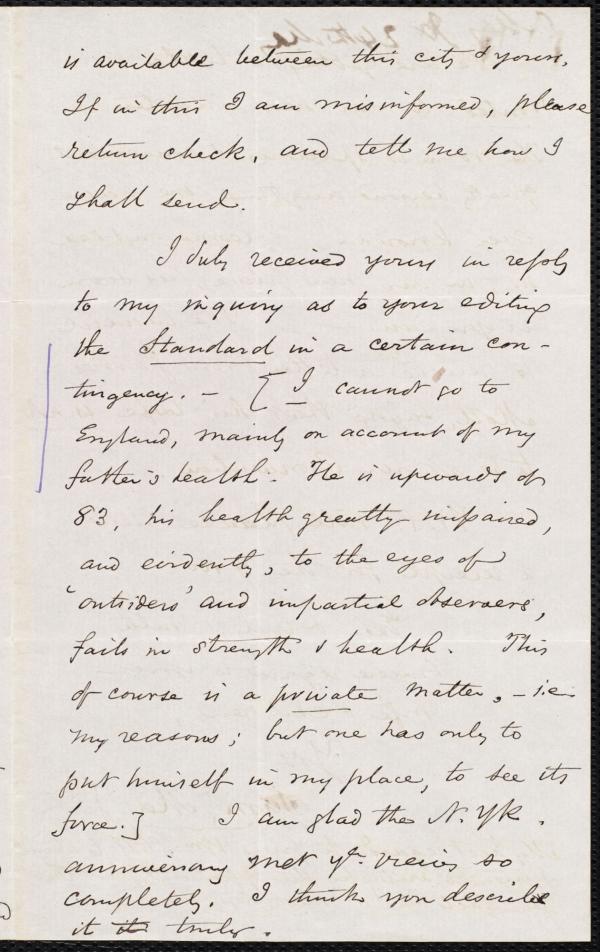 is available between this city & yours.
If in this I am misinformed, please
return check, and tell me how I
shall send.
I duly received yours in reply
to my inquiry as to your editing
the Standard in a certain con-
tingency. — [I cannot go to
England, mainly on account of my
father's health. He is upwards of
83, his health greatly impaired,
and evidently, to the eyes of
'outsiders' and impartial observers,
fails in strength & health. This
of course is a private matter, — i.e.
my reasons; but one has only to
put himself in my place, to see its
force.] I am glad the N. Yk.
anniversary met yr. views so
completely. I think you describe
it truly.